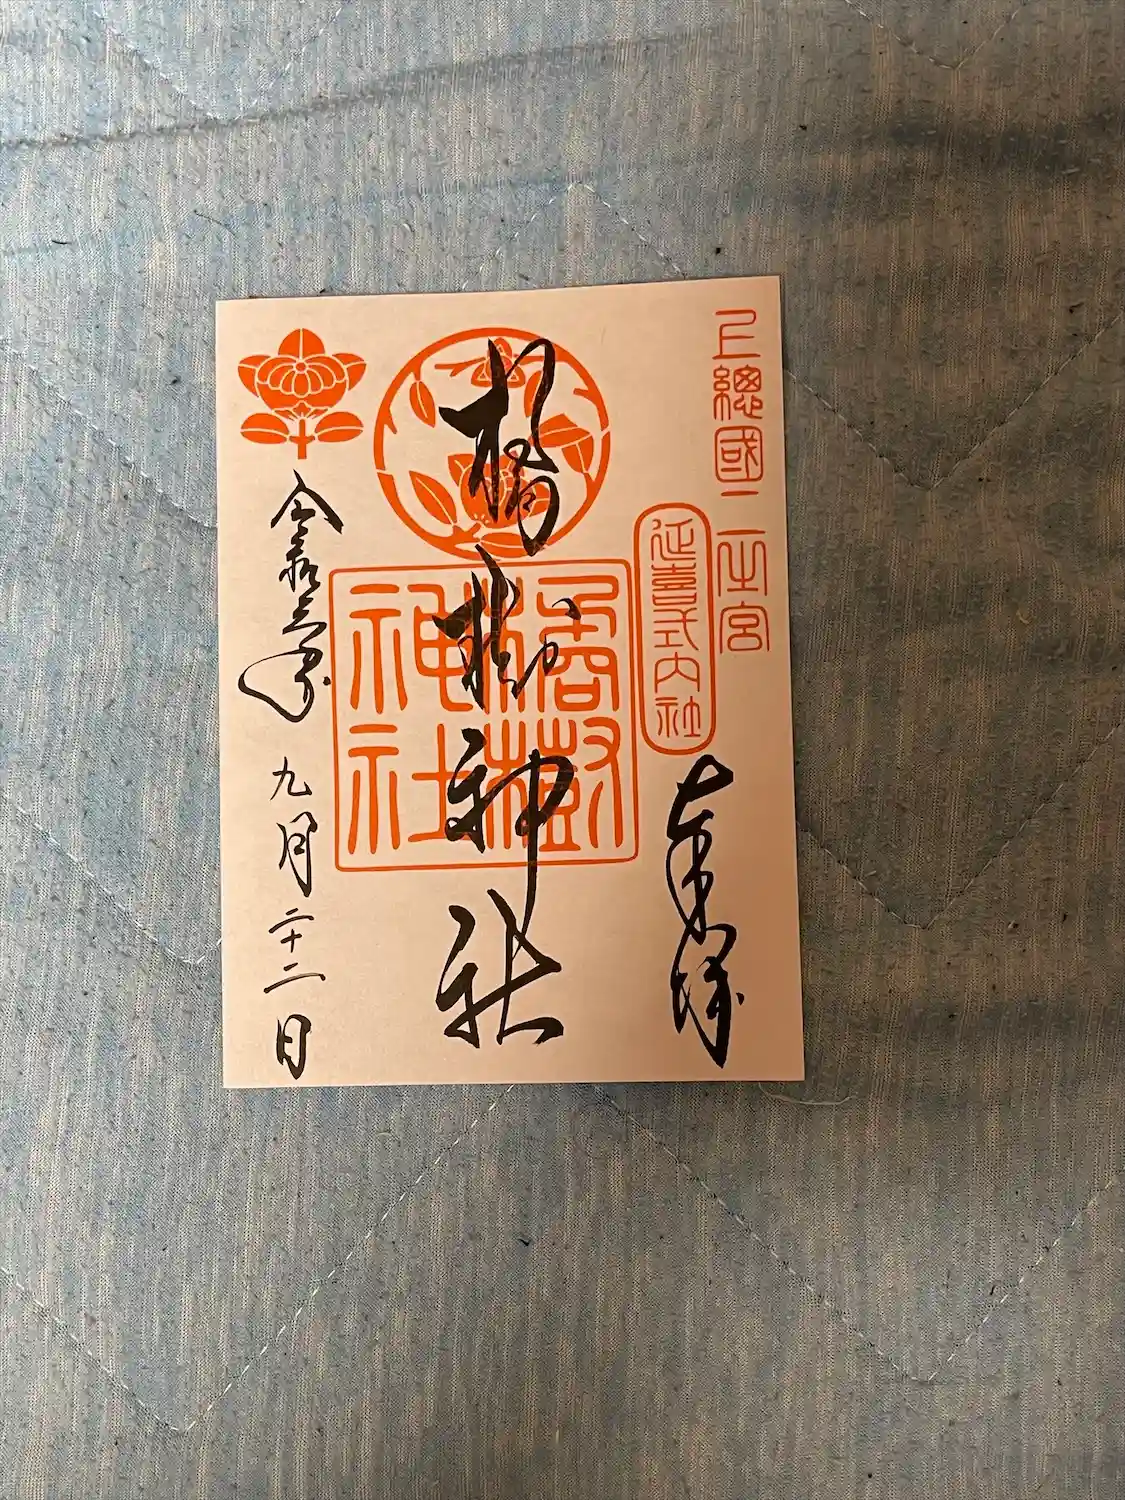 上總國二之宮
延喜式内社
奉拝
橘樹神社
橘樹神社
令和六年九月二十二日